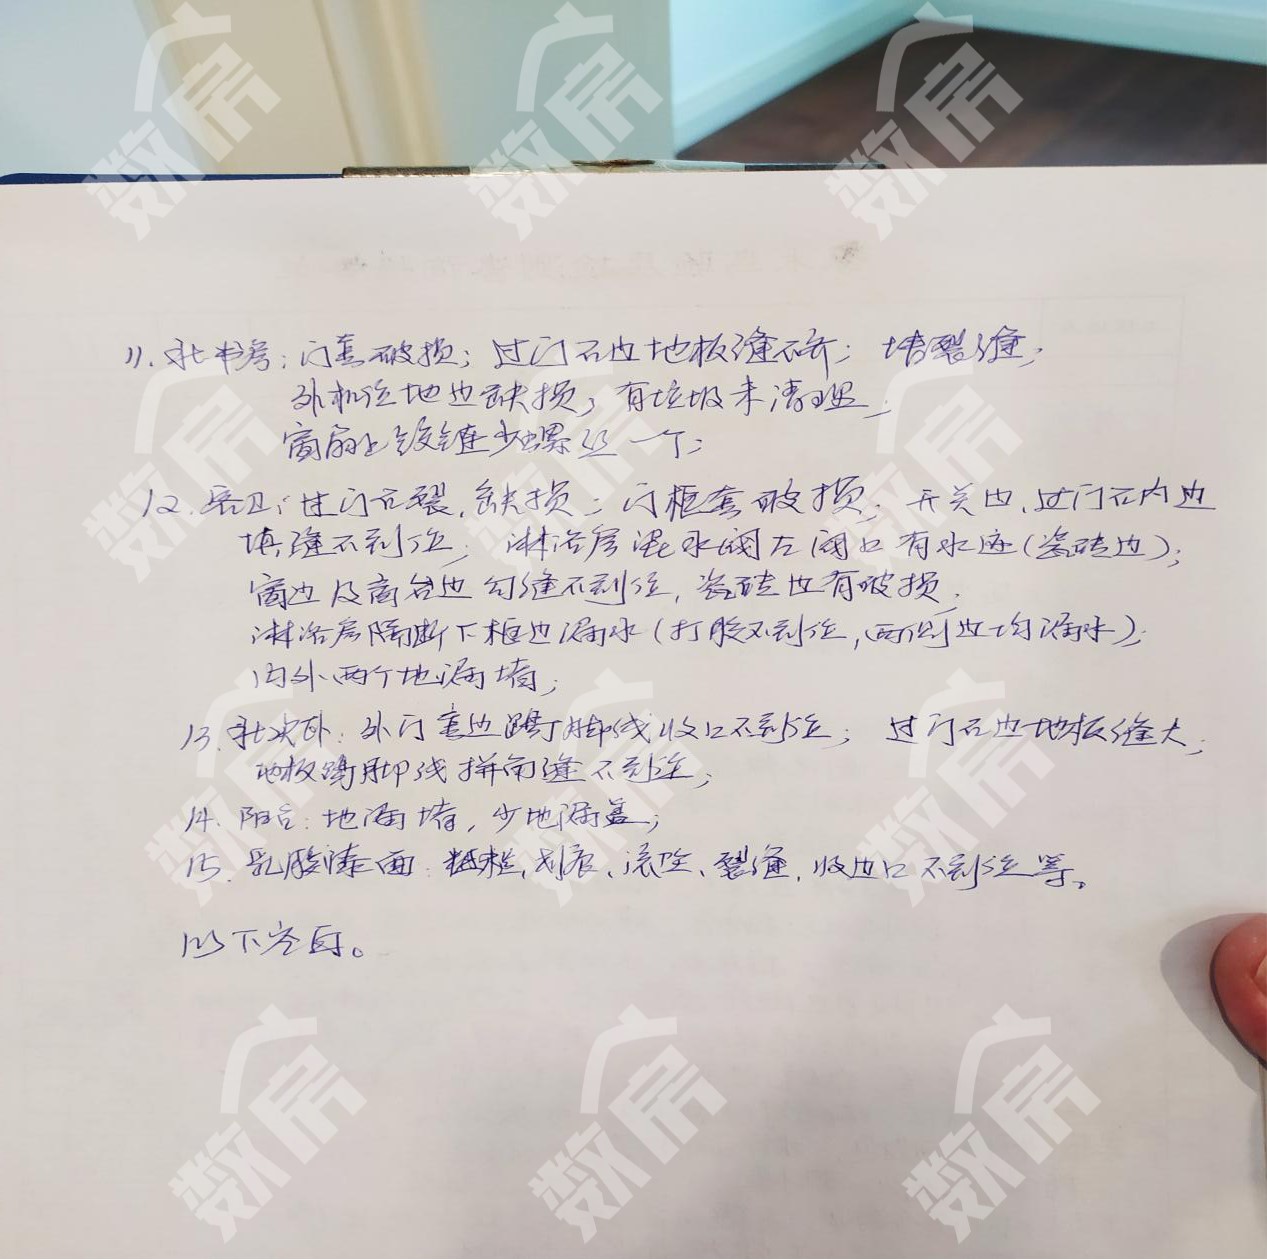 11. 北书房：门套破损；过门石边地板缝不齐；墙裂缝；
外机位地边缺损，有垃圾未清理；
窗扇上铰链少螺丝一个；
12. 客卫：过门石裂，缺损；门框套破损；开关边、过门石内边
填缝不到位；淋浴房混水阀左阀口有水迹（瓷砖边）；
窗边及窗台边勾缝不到位，瓷砖边有破损，
淋浴房隔断下框边漏水（打胶不到位，两侧边均漏水）；
内外两个地漏堵；
13. 北次卧：外门套边踢脚线收口不到位；过门石边地板缝大；
地板踢脚线拼角缝不到位；
14. 阳台：地漏堵，少地漏盖；
15. 乳胶漆面：粗糙，划痕、流坠、裂缝，收边口不到位等。
以下空白。
数房
数房
数房
数房
数房
数房
数房
数房
数房
数房
数房
数房